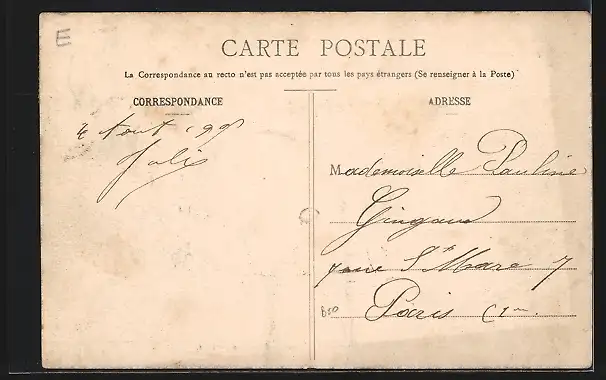 E
CARTE POSTALE
La Correspondance au recto n'est pas acceptée par tous les pays étrangers (Se renseigner à la Poste)
CORRESPONDANCE
ADRESSE
Aout
Mademoiselle Pauline
St Marc 7
Paris